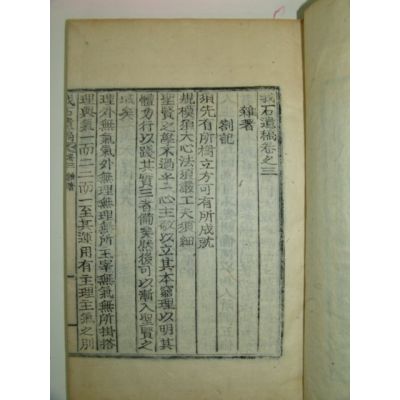 我石遺稿卷之三
雜著
劄記
須先有所樹立方可有所成就
規模須大心法須嚴工夫須細
聖賢之學不過乎一心主敬以立其本窮理以明其
體力行以踐其實三者備矣然後可以漸入聖賢之
域矣
理外無氣氣外無理無理無所主宰無氣無所掛搭
理與氣一而二二而一至其運用有主理主氣之別
我石遺稿 卷之三 雜著 一